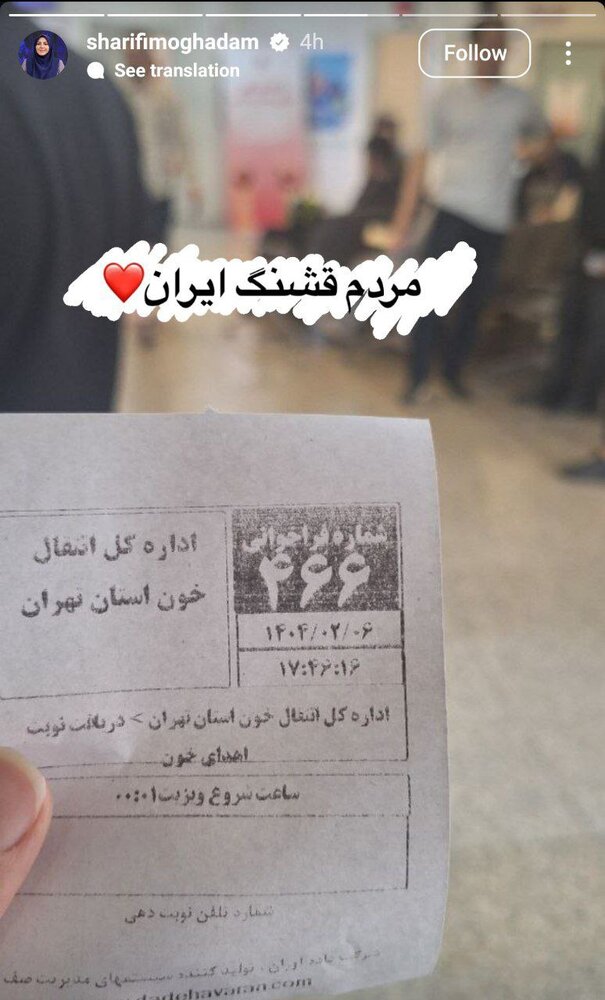 sharifimoghadam 4h
Follow
See translation
مردم قشنگ ایران❤️
شماره فراخوانی
۴۶۶
اداره کل انتقال
خون استان تهران
۱۴۰۴/۰۲/۰۶
۱۷:۴۶:۱۶
اداره کل انتقال خون استان تهران > دریافت نوبت
اهدای خون
ساعت شروع ویزیت ۰۰:۰۱
شماره تلفن نوبت دهی
تولید کننده سیستمهای مدیریت صف